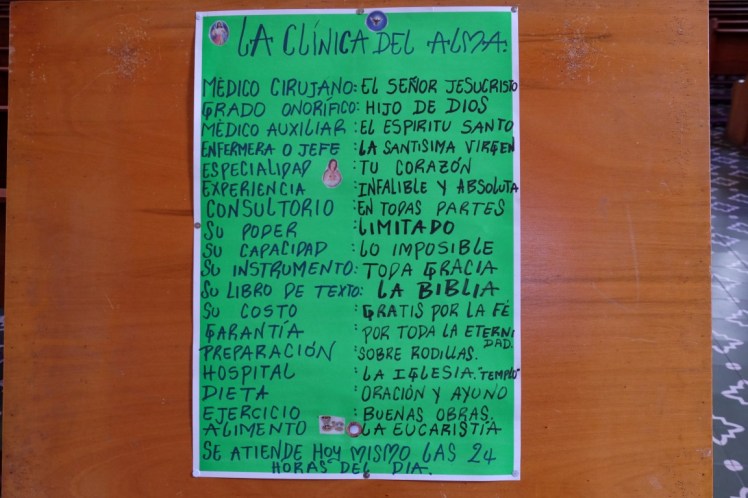 LA CLÍNICA DEL ALMA.
MÈDICO CIRUJÁNO: EL SEÑOR JESUCRISTO
GRADO ONORÍFICO: HIJO DE DIOS
MÈDICO AUXILIAR : EL ESPIRITU SANTO
ENFERMERA O JEFE : LA SANTISIMA VIRGEN
ESPECIALIDAD : TU CORAZÓN
EXPERIENCIA : INFALIBLE Y ABSOLUTA
CONSULTORIO : EN TODAS PARTES
SU PODER : LIMITADO
SU CAPACIDAD : LO IMPOSIBLE
SU INSTRUMENTO: TODA GRACIA
SU LIBRO DE TEXTO: LA BIBLIA
SU COSTO : GRATIS POR LA FÉ
GARANTÍA : POR TODA LA ETERNI
DAD.
PREPARACIÓN : SOBRE RODILLAS.
HOSPITAL : LA IGLESIA. "TEMPLO"
DIETA : ORACIÓN Y AYUNO
EJERCICIO : BUENAS OBRAS.
ALIMENTO : LA EUCARISTÍA
SE ATIENDE HOY MISMO LAS 24
HORAS DEL DIA.